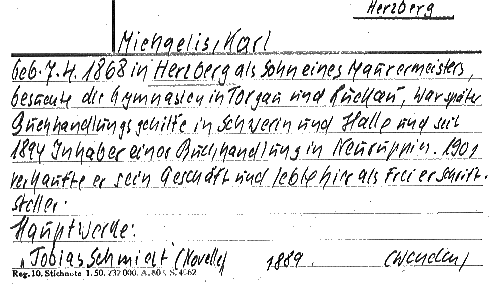 Herzberg
Michaelis, Karl
geb. 7. 4. 1868 in Herzberg als Sohn eines Maurermeisters,
besuchte die Gymnasien in Torgau und Luckau, war später
Buchhandlungsgehilfe in Schwerin und Halle und seit
1894 Inhaber einer Buchhandlung in Neuruppin. 1901
verkaufte er sein Geschäft und lebte hier als freier Schrift-
steller.
Hauptwerke:
"Tobias Schmidt" (Novelle) 1889. (wenden)
Reg. 10. Stichnote 1. 50. 737 000. A. 80